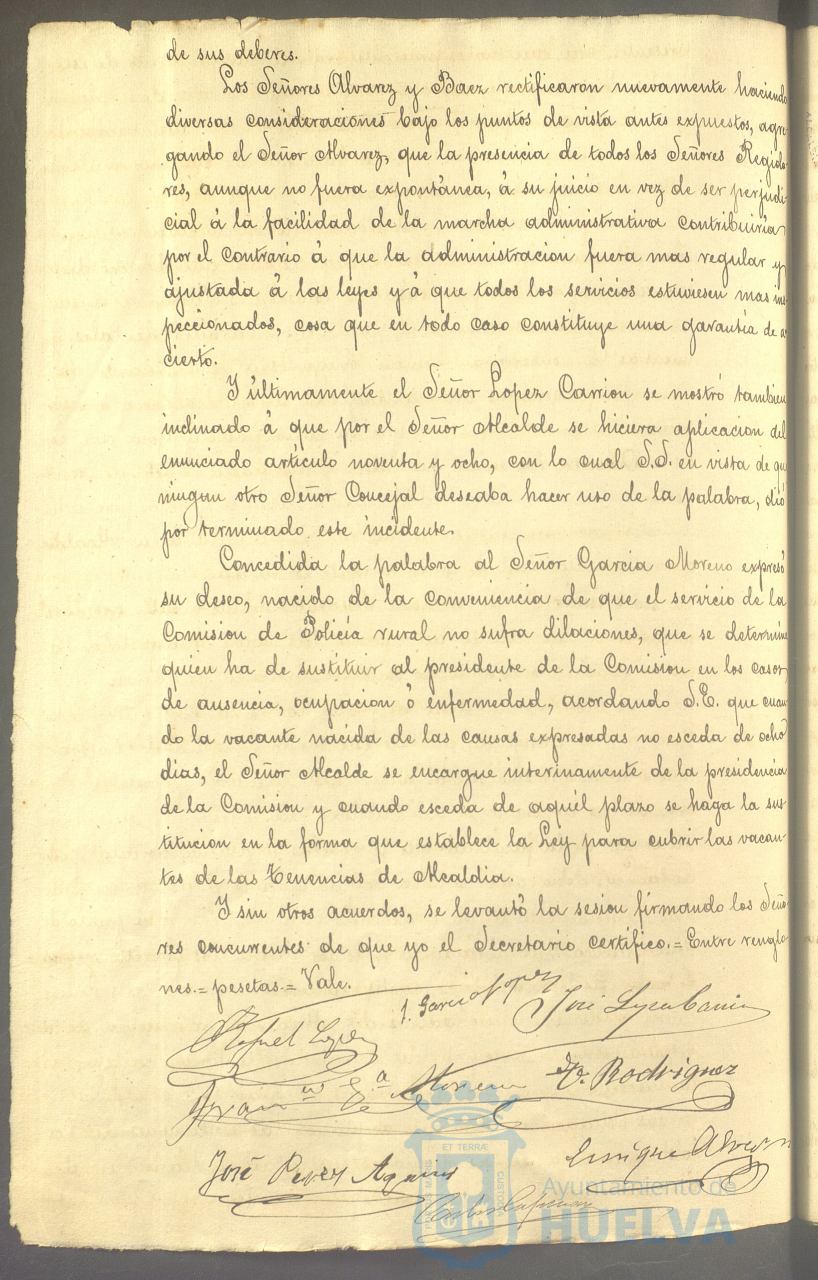 de sus deberes.
Los Señores Alvarez y Baez rectificaron nuevamente haciendo
diversas consideraciones bajo los puntos de vista antes expuestos, agre
gando el Señor Alvarez, que la presencia de todos los Señores Regido
res, aunque no fuera expontánea, á su juicio en vez de ser perjudi
cial á la facilidad de la marcha administrativa contribuiria
por el contrario á que la administracion fuera mas regular y
ajustada á las leyes y á que todos los servicios estuviesen mas ins
peccionados, cosa que en todo caso constituye una garantia de a
cierto.
I últimamente el Señor Lopez Carrion se mostró tambien
inclinado á que por el Señor Alcalde se hiciera aplicacion del
enunciado artículo noventa y ocho, con lo cual S.S. en vista de que
ningun otro Señor Concejal deseaba hacer uso de la palabra, dió
por terminado este incidente.
Concedida la palabra al Señor Garcia Moreno expresó
su deseo, nacido de la conveniencia de que el servicio de la
Comision de Policía rural no sufra dilaciones, que se determine
quien ha de sustituir al presidente de la Comision en los casos,
de ausencia, ocupacion ó enfermedad, acordando S.E. que cuan
do la vacante nacida de las causas expresadas no esceda de ocho
dias, el Señor Alcalde se encargue interinamente de la presidencia
de la Comision y cuando esceda de aquél plazo se haga la sus
titucion en la forma que establece la Ley para cubrir las vacan-
tes de las Tenencias de Alcaldia.
I sin otros acuerdos, se levantó la sesion firmando los Seño
res concurrentes de que yo el Secretario certifico.=Entre renglo
nes.=pesetas.=Vale.
J. Garcia Lopez
José Lopez Carrion
Rafael Lopez
Fran.co Ga Moreno
F. Rodriguez
José Perez
Enrique Alvarez
ET TERRÆ
CUSTOS
Ayuntamiento de
HUELVA